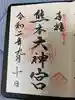 奉拝
熊本大神宮
令和二年六月十日